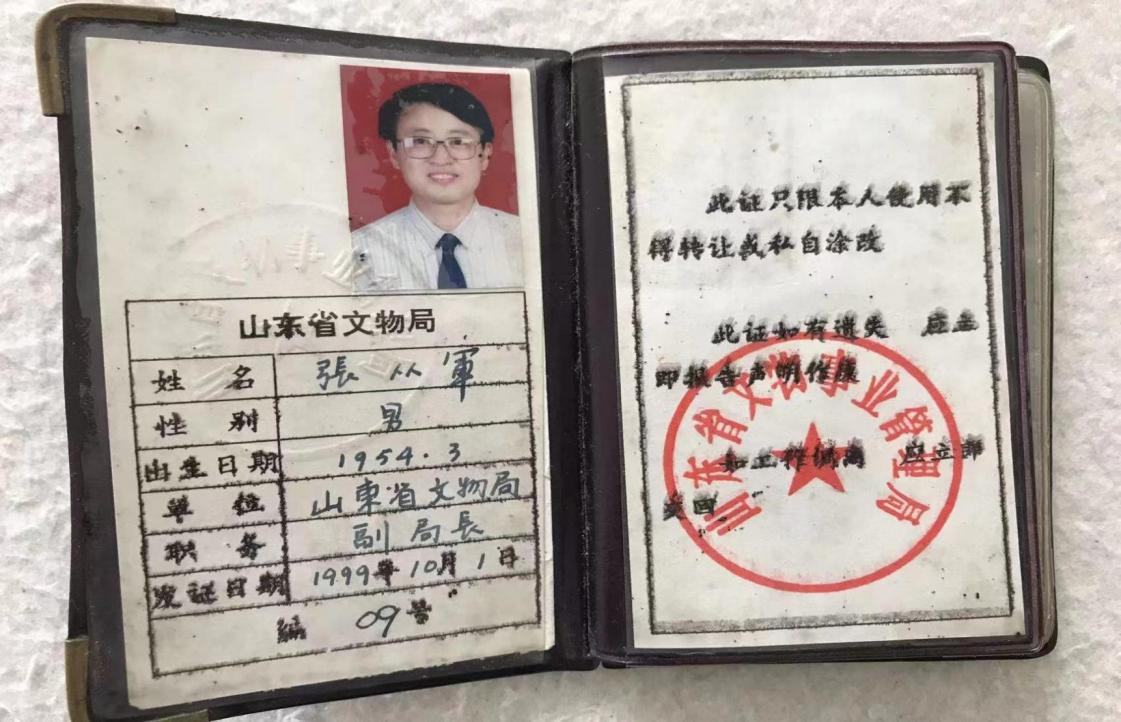 山东省文物局
姓名 張从軍
性别 男
出生日期 1954.3
单位 山東省文物局
职务 副局長
发证日期 1999年10月1日
编 09号
此证只限本人使用不
得转让或私自涂改
此证如有遗失 应立
即报告声明作废
如工作调离 应立即
交回
山东省文物事业管理局